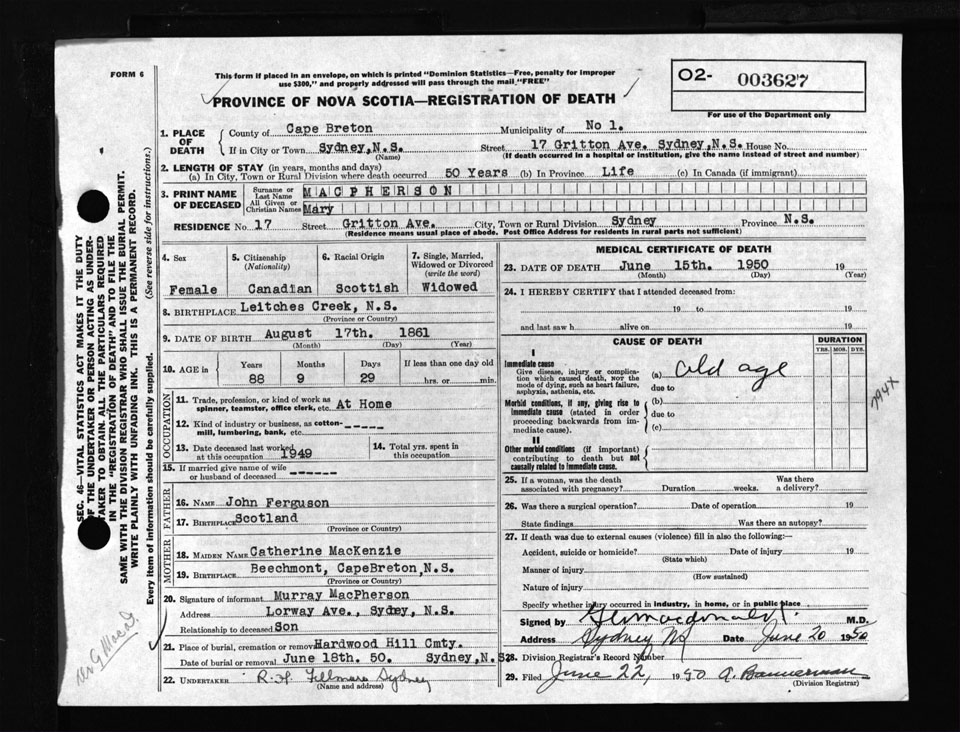 FORM 6
This form if placed in an envelope, on which is printed "Dominion Statistics—Free, penalty for improper
use $300," and properly addressed will pass through the mail "FREE"
PROVINCE OF NOVA SCOTIA—REGISTRATION OF DEATH
O2- 003627
For use of the Department only
1. PLACE OF DEATH
County of Cape Breton Municipality of No 1.
If in City or Town Sydney,N.S. Street 17 Gritton Ave. Sydney,N.S. House No.
(Name) (If death occurred in a hospital or institution, give the name instead of street and number)
2. LENGTH OF STAY (in years, months and days)
(a) In City, Town or Rural Division where death occurred 50 Years (b) In Province Life (c) In Canada (if immigrant)
3. PRINT NAME OF DECEASED
Surname or Last Name MACPHERSON
All Given or Christian Names Mary
RESIDENCE No. 17 Street Gritton Ave. City, Town or Rural Division Sydney Province N.S.
(Residence means usual place of abode. Post Office Address for residents in rural parts not sufficient)
4. Sex
Female
5. Citizenship
(Nationality)
Canadian
6. Racial Origin
Scottish
7. Single, Married,
Widowed or Divorced
(write the word)
Widowed
8. BIRTHPLACE Leitches Creek, N.S.
(Province or Country)
9. DATE OF BIRTH August 17th. 1861
(Month) (Day) (Year)
10. AGE in Years Months Days If less than one day old
88 9 29 hrs. or min.
OCCUPATION
11. Trade, profession, or kind of work as
spinner, teamster, office clerk, etc. At Home
12. Kind of industry or business, as cotton-
mill, lumbering, bank, etc.
13. Date deceased last worked
at this occupation 1949
14. Total yrs. spent in
this occupation
15. If married give name of wife
or husband of deceased
FATHER
16. NAME John Ferguson
17. BIRTHPLACE Scotland
(Province or Country)
MOTHER
18. MAIDEN NAME Catherine MacKenzie
19. BIRTHPLACE Beechmont, CapeBreton,N.S.
(Province or Country)
20. Signature of informant Murray MacPherson
Address Lorway Ave., Sydney, N.S.
Relationship to deceased Son
21. Place of burial, cremation or removal Hardwood Hill Cmty.
Date of burial or removal June 18th. 50. Sydney,N.S.
22. UNDERTAKER R.H. Fillmore Sydney
(Name and address)
MEDICAL CERTIFICATE OF DEATH
23. DATE OF DEATH June 15th. 1950 19
(Month) (Day) (Year)
24. I HEREBY CERTIFY that I attended deceased from:
19 to 19
and last saw h alive on 19
CAUSE OF DEATH
DURATION
YRS. MOS. DYS.
I
Immediate cause
Give disease, injury or complica-
tion which caused death, NOT the
mode of dying, such as heart failure,
asphyxia, asthenia, etc.
(a) old age
due to
Morbid conditions, if any, giving rise to
immediate cause (stated in order
proceeding backwards from im-
mediate cause).
(b)
due to
(c)
II
Other morbid conditions (if important)
contributing to death but not
causally related to immediate cause.
794X
25. If a woman, was the death
associated with pregnancy? Duration weeks. Was there
a delivery?
26. Was there a surgical operation? Date of operation 19
State findings Was there an autopsy?
27. If death was due to external causes (violence) fill in also the following:—
Accident, suicide or homicide? Date of injury 19
(State which)
Manner of injury
(How sustained)
Nature of injury
Specify whether injury occurred in industry, in home, or in public place
Signed by M.D.
Address Sydney NS Date June 20 1950
28. Division Registrar's Record Number
29. Filed June 22, 1950 A. Bannerman
(Division Registrar)
SEC. 46—VITAL STATISTICS ACT MAKES IT THE DUTY
OF THE UNDERTAKER OR PERSON ACTING AS UNDER-
TAKER TO OBTAIN ALL THE PARTICULARS REQUIRED
IN THE "REGISTRATION OF DEATH" AND TO FILE THE
SAME WITH THE DIVISION REGISTRAR WHO SHALL ISSUE THE BURIAL PERMIT.
WRITE PLAINLY WITH UNFADING INK. THIS IS A PERMANENT RECORD.
Every item of information should be carefully supplied. (See reverse side for instructions.)